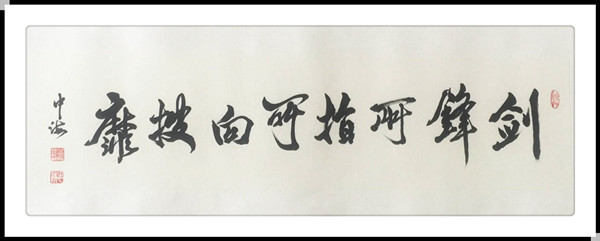 剑鋒所指所向披靡
中海